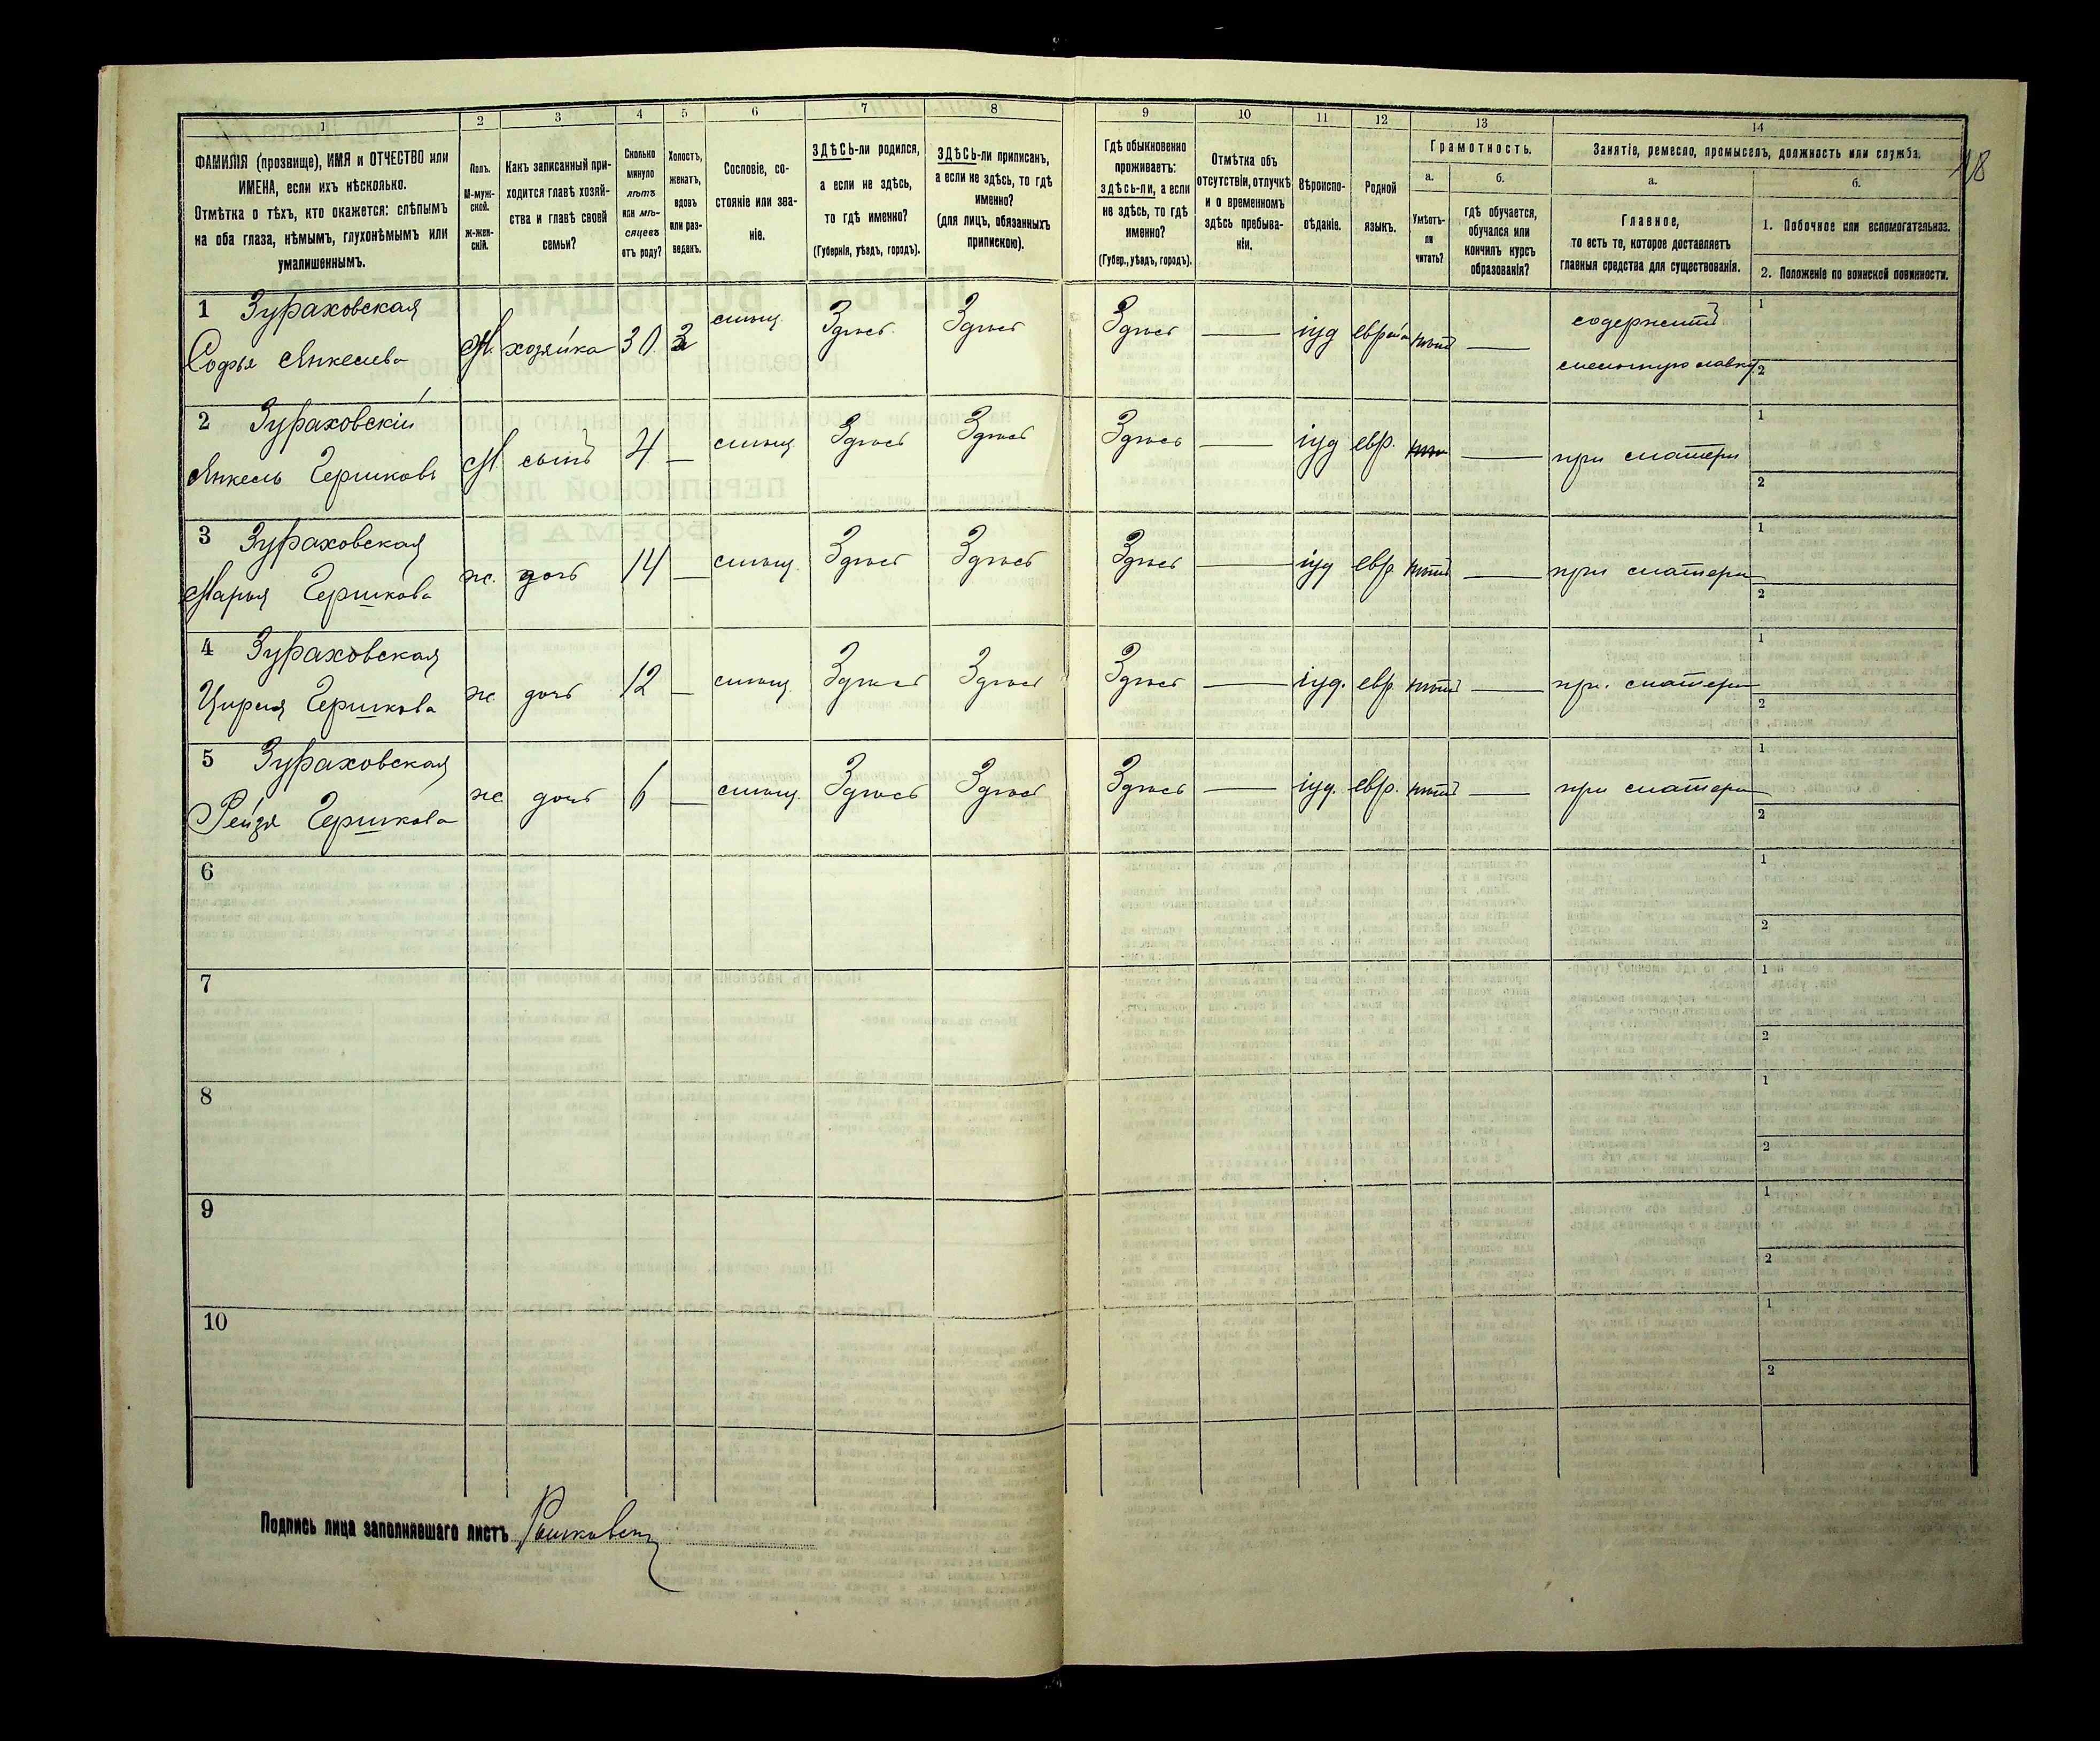 1 2 3 4 5 6 7 8 9 10 11 12 13 14
ФАМИЛІЯ (прозвище), ИМЯ и ОТЧЕСТВО или
ИМЕНА, если ихъ нѣсколько.
Отмѣтка о тѣхъ, кто окажется: слѣпымъ
на оба глаза, нѣмымъ, глухонѣмымъ или
умалишеннымъ.
Полъ.
М-муж-
ской.
ж-жен-
скій.
Какъ записанный при-
ходится главѣ хозяй-
ства и главѣ своей
семьи?
Сколько
минуло
лѣтъ
или мѣ-
сяцевъ
отъ роду?
Холостъ,
женатъ,
вдовъ
или раз-
веденъ.
Сословіе, со-
стояніе или зва-
ніе.
ЗДѢСЬ-ли родился,
а если не здѣсь,
то гдѣ именно?
(Губернія, уѣздъ, городъ).
ЗДѢСЬ-ли приписанъ,
а если не здѣсь, то гдѣ
именно?
(для лицъ, обязанныхъ
припискою).
Гдѣ обыкновенно
проживаетъ:
здѣсь-ли, а если
не здѣсь, то гдѣ
именно?
(Губер., уѣздъ, городъ).
Отмѣтка объ
отсутствіи, отлучкѣ
и о временномъ
здѣсь пребыва-
ніи.
Вѣроиспо-
вѣданіе.
Родной
языкъ.
Грамотность.
а.
Умѣетъ-
ли
читать?
б.
гдѣ обучается,
обучался или
кончилъ курсъ
образованія?
Занятіе, ремесло, промыселъ, должность или служба.
а.
Главное,
то есть то, которое доставляетъ
главныя средства для существованія.
б.
1. Побочное или вспомогательное.
2. Положеніе по воинской повинности.
1 Зураховская
Софья Янкелева
ж. хозяйка 30 мѣщ. Здѣсь Здѣсь Здѣсь — іуд еврей нѣтъ — содержитъ
мелочную лавку
1
2
2 Зураховскій
Янкель Гершковъ
М. сынъ 4 — мѣщ Здѣсь Здѣсь Здѣсь — іуд евр. — при матери
1
2
3 Зураховская
Марья Гершкова
ж. дочь 14 — мѣщ. Здѣсь Здѣсь Здѣсь — іуд евр. нѣтъ — при матери
1
2
4 Зураховская
Гершкова
ж дочь 12 — мѣщ. Здѣсь Здѣсь Здѣсь — іуд. евр. нѣтъ — при матери
1
2
5 Зураховская
Рейзя Гершкова
ж дочь 6 — мѣщ. Здѣсь Здѣсь Здѣсь — іуд. евр. нѣтъ — при матери
1
2
6
1
2
7
1
2
8
1
2
9
1
2
10
1
2
Подпись лица заполнявшаго листъ